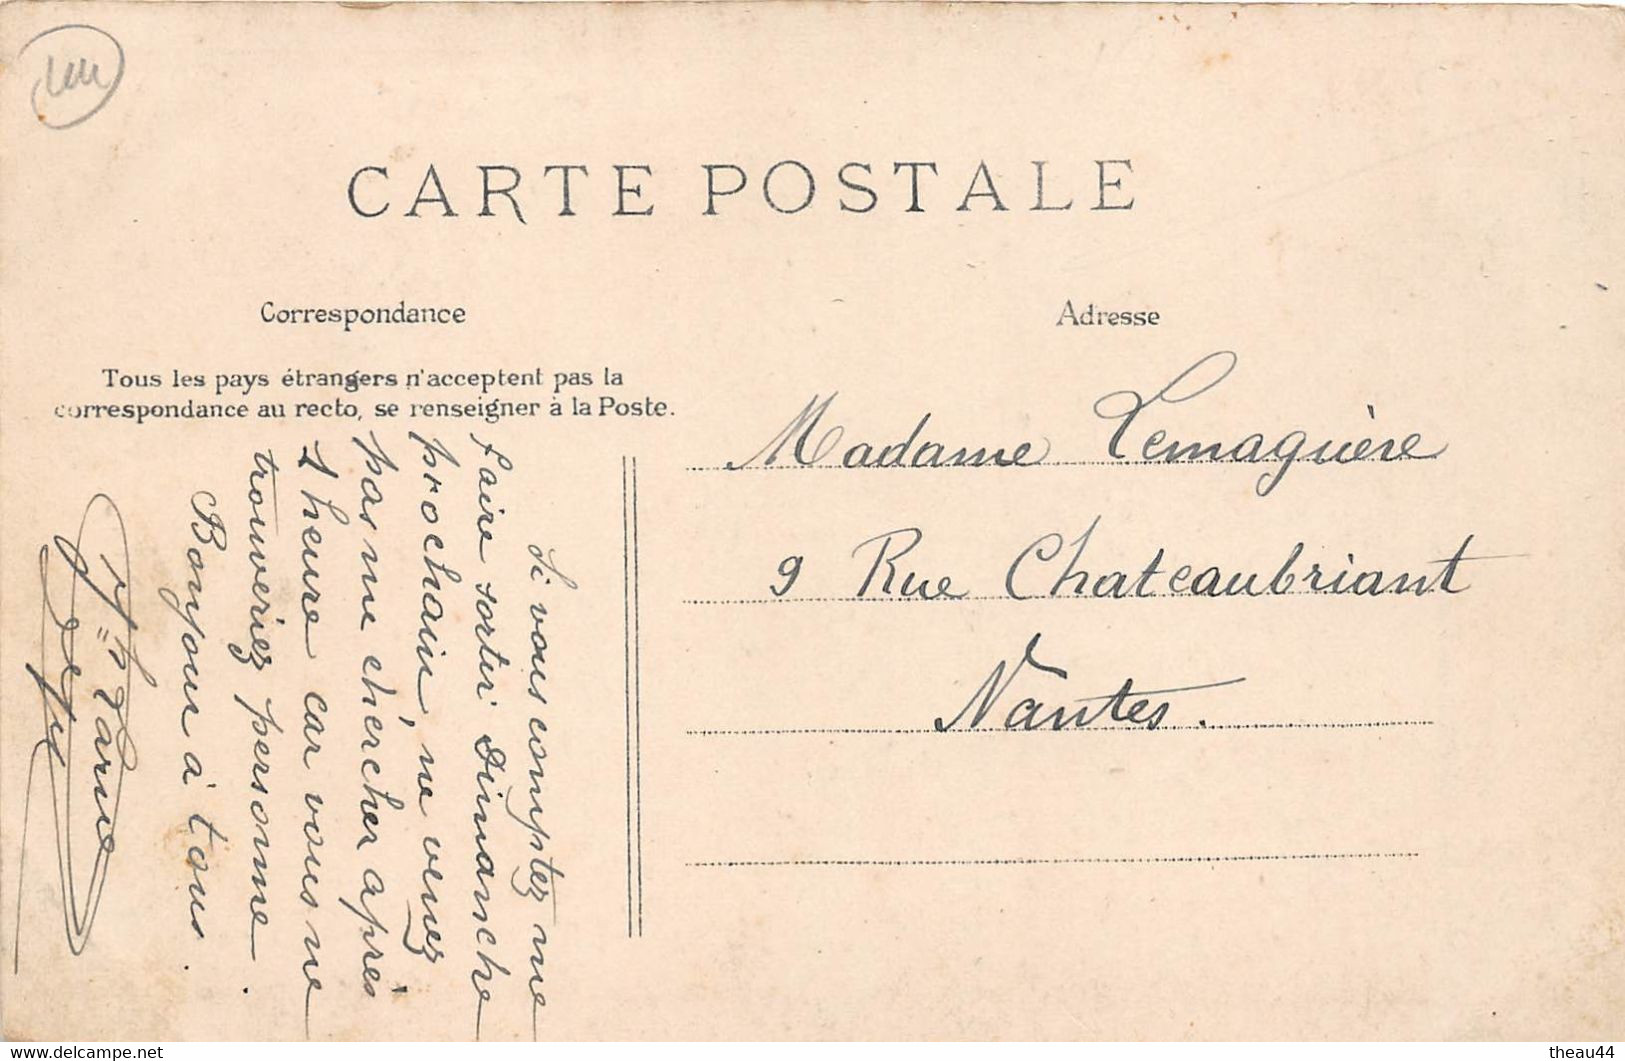 44
CARTE POSTALE
Correspondance
Tous les pays étrangers n'acceptent pas la
correspondance au recto, se renseigner à la Poste.
Si vous comptez me
faire sortir Dimanche
prochain, ne venez
pas me chercher après
1 heure car vous ne
trouveriez personne.
Bonjour à tous.
Adresse
Madame Lemaguère
9 Rue Chateaubriant
Nantes.
https://www.delcampe.net
theau44